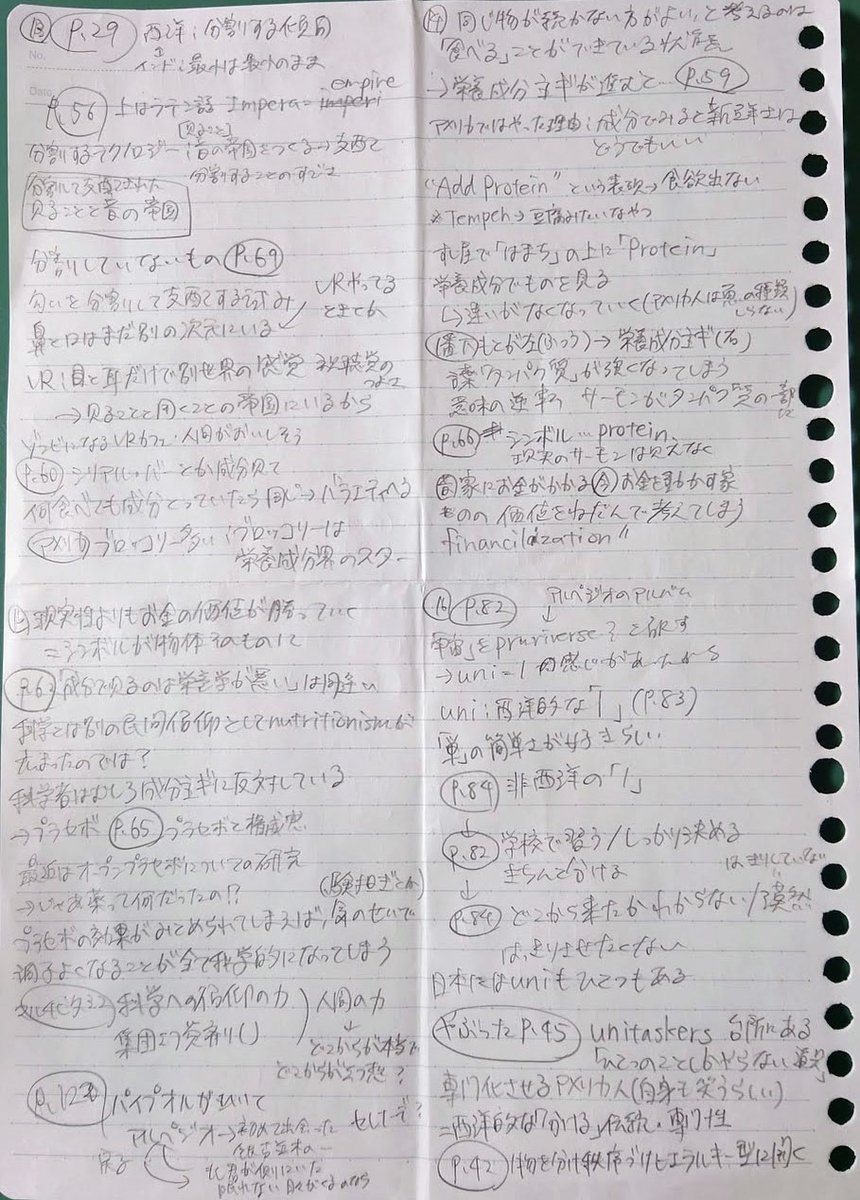 ⑬ P.29 西洋：分割する傾向
No.
インド：最小は最小のまま
Date
P.56 上はラテン語 Impera = empire
[見ること]
分割するテクノロジー：音の帝国をつくる→支配て
分割することのすごさ
分割して支配された
見ることと音の帝国
分割していないもの P.69
匂いを分割して支配する試み
VRやってる
ときとか
鼻と口はまだ別の次元にいる
VR：目と耳だけで別世界の感覚 視聴覚の
つよさ
→見ることと聞くことの帝国にいるから
ゾンビになるVRカフェ・人間がおいしそう
P.60 シリアル・バーとか成分見て
何食べても成分とっていたら同じ→バラエティへる
アメリカ ブロッコリー多い：ブロッコリーは
栄養成分界のスター
⑭ 同じ物が続かない方がよい、と考えるのは
「食べる」ことができている状態
→栄養成分主ギが進むと… P.59
アメリカではやった理由：成分でみると新鮮土は
どうでもいい
"Add Protein" という表現→食欲出ない
※Tempeh→豆腐みたいなやつ
すし屋で「はまち」の上に「Protein」
栄養成分でものを見る
↳違いがなくなっていく(アメリカ人は魚の種類
しらない)
もとが左(ふつう)→栄養成分主ギ(右)
言葉「タンパク質」が強くなってしまう
意味の逆転 サーモンがタンパク質の一部に
P.66 シンボル…protein
現実のサーモンは見えなく
家にお金がかかる 今 お金を動かす家
ものの価値をねだんで考えてしまう
financilaization"
⑮ 現実性よりもお金の価値が勝っていく
＝シンボルが物体そのものに
P.63 「成分で見るのは栄養学が悪い」は間違い
科学とは別の民間信仰としてnutritionismが
広まったのでは？
科学者はむしろ成分主ギに反対している
→プラセボ P.65 プラセボと権威
最近はオープンプラセボについての研究
→じゃあ薬って何だったの!?
(験担ぎとか)
プラセボの効果がみとめられてしまえば、気のせいで
調子よくなることが全て科学的になってしまう
科学への信仰の力
集団エゴ
人間の力
↓
どこからが本当で
どこからが幻想？
P.120 パイプオルガンひいて
アルペジオ→初めて出会った
セレナーデ？
眠れない
⑯ P.82 アルペジオのアルバム
宇宙」をpruriverseと訳す
→uni＝1 の感じがあったから
uni：西洋的な「1」(P.83)
「単」の簡単さが好きらしい
P.84 非西洋の「1」
↓
P.82 学校で習う/しっかり決める
きちんと分ける
はっきりしていない
↓
P.84 どこから来たかわからない/漠然
はっきりさせたくない
日本にはuniもひとつもある
やぶったP.45 unitaskers 台所にある
「ひとつのことしかやらない道具」
専門化させるアメリカ人(自身も笑うらしい)
＝西洋的な「分ける」伝統・専門性
P.42 物を分け秩序づけヒエラルキー型に